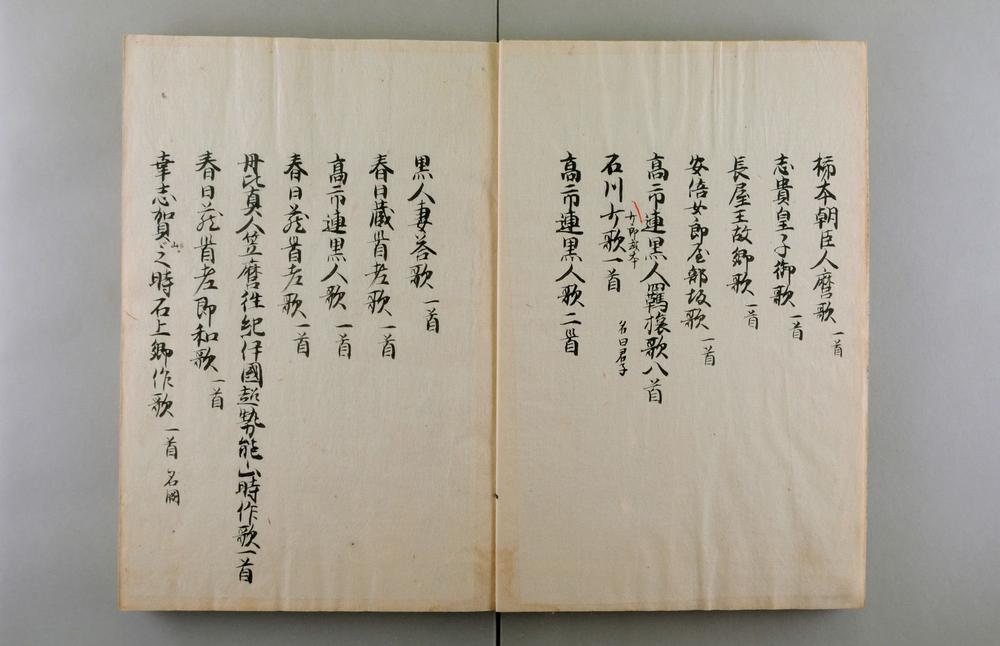 柿本朝臣人麿歌一首
志貴皇子御歌一首
長屋王故郷歌一首
安倍女郎屋部坂歌一首
高市連黒人羈旅歌八首
石川少歌一首 名曰君子
女郎或本
高市連黒人歌二首
黒人妻荅歌一首
春日蔵首老歌一首
高市連黒人歌一首
春日蔵首老歌一首
丹比真人笠麿徃紀伊國超勢能山時作歌一首
春日蔵首老即和歌一首
幸志賀之時石上卿作歌一首 名闕
山